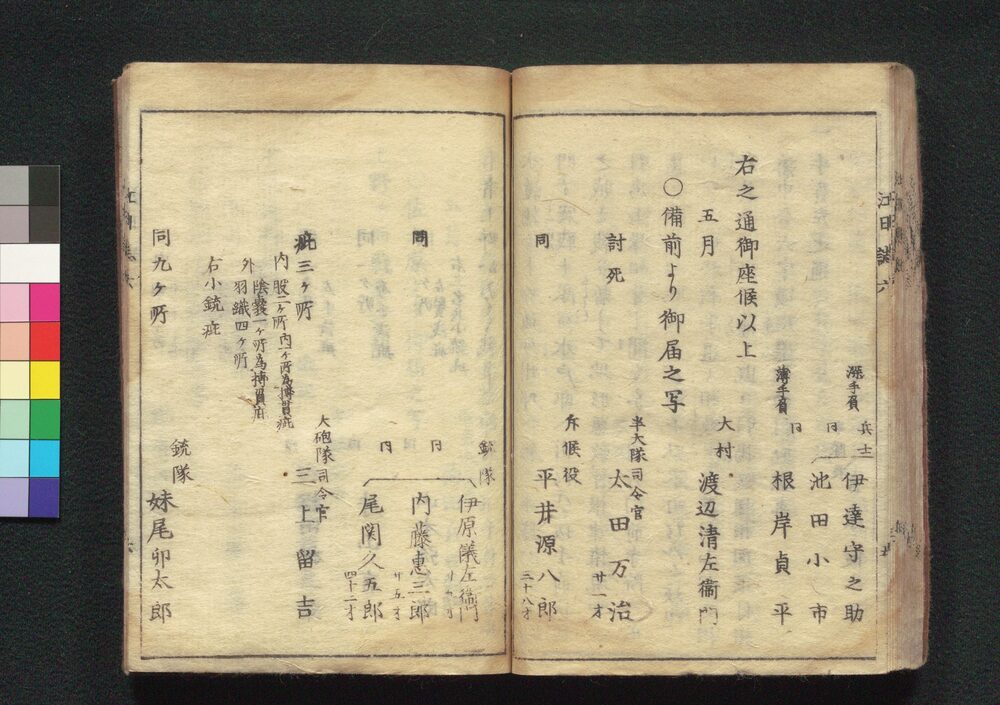 深手負 兵士 伊達守之助
同 池田小市
薄手負 同 根岸貞平
大村 渡辺清左衛門
右之通御座候以上
五月
〇備前より御届之写
半大隊司令官
討死 太田万治 廿一才
斥候役
同 平井源八郎 二十八才
銃隊 伊原儀左衛門
同 同 内藤惠三郎 廿五才
同 尾関久五郎 四十二才
大砲隊司令官
疵三ヶ所 三上留吉
内股二ヶ所内一ヶ所為搏貫疵
陰嚢一ヶ所為搏貫疵
外羽織四ヶ所
右小銃疵
銃隊
同九ヶ所 妹尾卯太郎
江日誌六